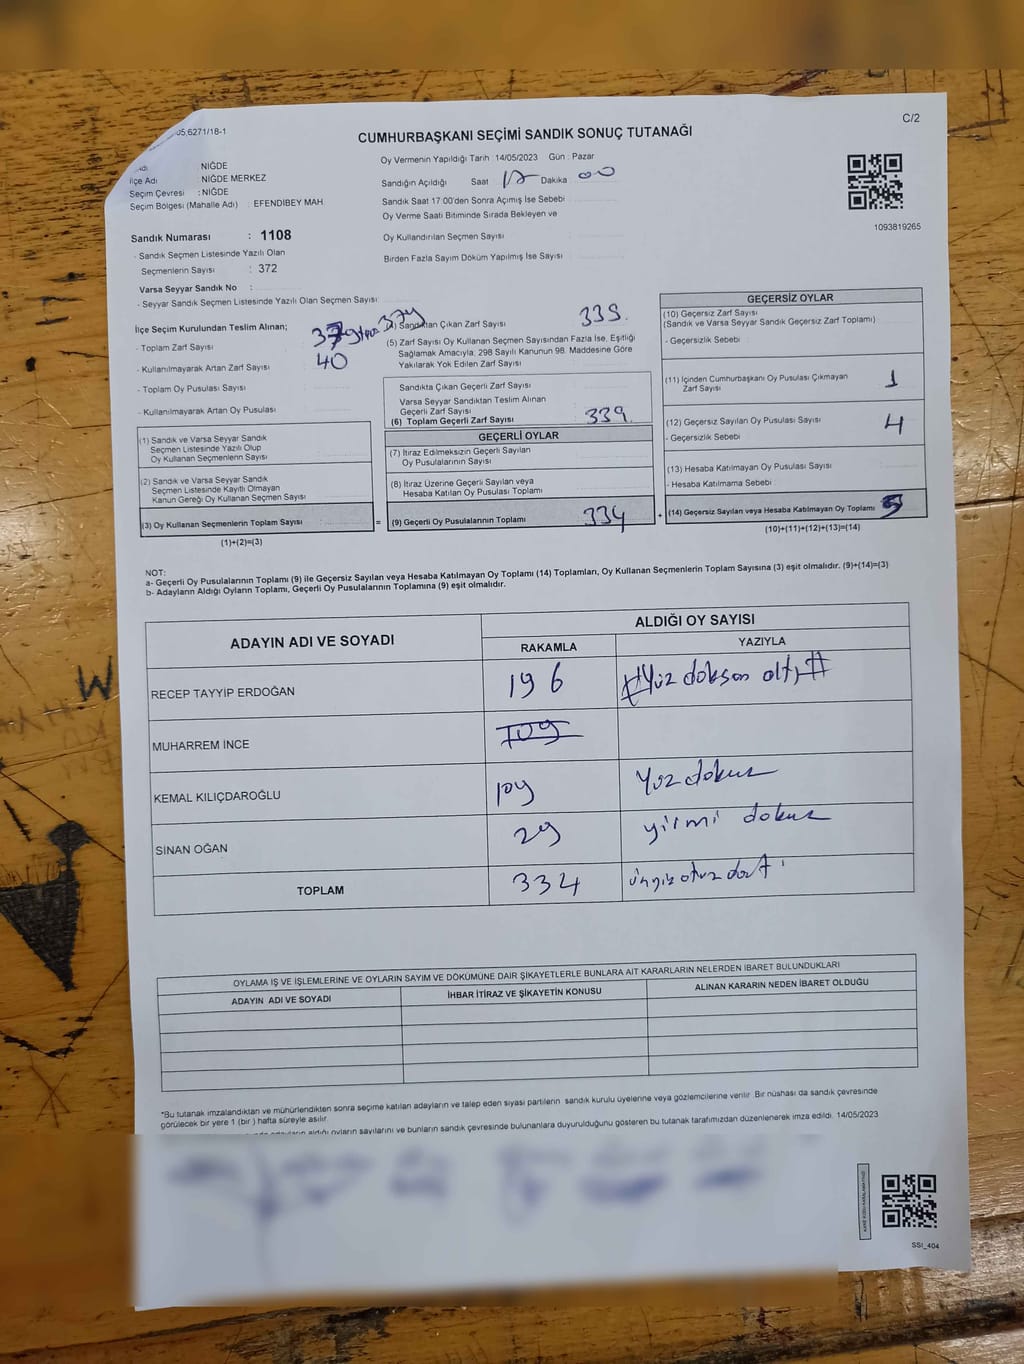 05.6271/18-1
C/2
CUMHURBAŞKANI SEÇİMİ SANDIK SONUÇ TUTANAĞI
NİĞDE
İlçe Adı NİĞDE MERKEZ
Seçim Çevresi : NİĞDE
Seçim Bölgesi (Mahalle Adı) : EFENDİBEY MAH.
Sandık Numarası : 1108
- Sandık Seçmen Listesinde Yazılı Olan
Seçmenlerin Sayısı : 372
Varsa Seyyar Sandık No :
- Seyyar Sandık Seçmen Listesinde Yazılı Olan Seçmen Sayısı:
Oy Vermenin Yapıldığı Tarih : 14/05/2023 Gün : Pazar
Sandığın Açıldığı Saat 17 Dakika 00
Sandık Saat 17.00'den Sonra Açımış İse Sebebi
Oy Verme Saati Bitiminde Sırada Bekleyen ve
Oy Kullandırılan Seçmen Sayısı
Birden Fazla Sayım Döküm Yapılmış İse Sayısı
1093819265
İlçe Seçim Kurulundan Teslim Alınan;
- Toplam Zarf Sayısı 379
- Kullanılmayarak Artan Zarf Sayısı 40
- Toplam Oy Pusulası Sayısı
- Kullanılmayarak Artan Oy Pusulası
(1) Sandık ve Varsa Seyyar Sandık
Seçmen Listesinde Yazılı Olup
Oy Kullanan Seçmenlerin Sayısı
(2) Sandık ve Varsa Seyyar Sandık
Seçmen Listesinde Kayıtlı Olmayan
Kanun Gereği Oy Kullanan Seçmen Sayısı
(3) Oy Kullanan Seçmenlerin Toplam Sayısı =
(1)+(2)=(3)
(4) Sandıktan Çıkan Zarf Sayısı 339.
(5) Zarf Sayısı Oy Kullanan Seçmen Sayısından Fazla İse, Eşitliği
Sağlamak Amacıyla, 298 Sayılı Kanunun 98. Maddesine Göre
Yakılarak Yok Edilen Zarf Sayısı
Sandıkta Çıkan Geçerli Zarf Sayısı
Varsa Seyyar Sandıktan Teslim Alınan
Geçerli Zarf Sayısı
(6) Toplam Geçerli Zarf Sayısı 339.
GEÇERLİ OYLAR
(7) İtiraz Edilmeksizin Geçerli Sayılan
Oy Pusulalarının Sayısı
(8) İtiraz Üzerine Geçerli Sayılan veya
Hesaba Katılan Oy Pusulası Toplamı
(9) Geçerli Oy Pusulalarının Toplamı 334 +
GEÇERSİZ OYLAR
(10) Geçersiz Zarf Sayısı
(Sandık ve Varsa Seyyar Sandık Geçersiz Zarf Toplamı)
- Geçersizlik Sebebi :
(11) İçinden Cumhurbaşkanı Oy Pusulası Çıkmayan
Zarf Sayısı 1
(12) Geçersiz Sayılan Oy Pusulası Sayısı 4
- Geçersizlik Sebebi
(13) Hesaba Katılmayan Oy Pusulası Sayısı
- Hesaba Katılmama Sebebi
(14) Geçersiz Sayılan veya Hesaba Katılmayan Oy Toplamı 5
(10)+(11)+(12)+(13)=(14)
NOT:
a- Geçerli Oy Pusulalarının Toplamı (9) ile Geçersiz Sayılan veya Hesaba Katılmayan Oy Toplamı (14) Toplamları, Oy Kullanan Seçmenlerin Toplam Sayısına (3) eşit olmalıdır. (9)+(14)=(3)
b- Adayların Aldığı Oyların Toplamı, Geçerli Oy Pusulalarının Toplamına (9) eşit olmalıdır.
ADAYIN ADI VE SOYADI
ALDIĞI OY SAYISI
RAKAMLA YAZIYLA
RECEP TAYYİP ERDOĞAN 196 #Yüz doksan altı#
MUHARREM İNCE 109
KEMAL KILIÇDAROĞLU 109 Yüz dokuz
SİNAN OĞAN 29 yirmi dokuz
TOPLAM 334 üçyüz otuz dört
OYLAMA İŞ VE İŞLEMLERİNE VE OYLARIN SAYIM VE DÖKÜMÜNE DAİR ŞİKAYETLERLE BUNLARA AİT KARARLARIN NELERDEN İBARET BULUNDUKLARI
ADAYIN ADI VE SOYADI İHBAR İTİRAZ VE ŞİKAYETİN KONUSU ALINAN KARARIN NEDEN İBARET OLDUĞU
*Bu tutanak imzalandıktan ve mühürlendikten sonra seçime katılan adayların ve talep eden siyasi partilerin sandık kurulu üyelerine veya gözlemcilerine verilir. Bir nüshası da sandık çevresinde
görülecek bir yere 1 (bir) hafta süreyle asılır.
aldığı oyların sayılarını ve bunların sandık çevresinde bulunanlara duyurulduğunu gösteren bu tutanak tarafımızdan düzenlenerek imza edildi. 14/05/2023
SSI_404